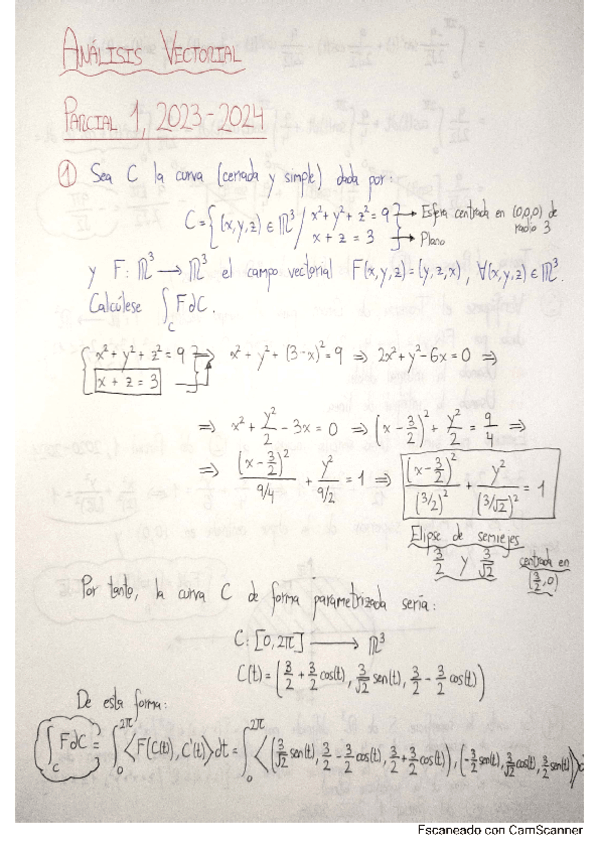 ANÁLISIS VECTORIAL
PARCIAL 1, 2023-2024
① Sea C la curva (cerrada y simple) dada por:
C = { (x,y,z) ∈ ℝ³ / x² + y² + z² = 9 → Esfera centrada en (0,0,0) de radio 3
x + z = 3 → Plano
y F: ℝ³ → ℝ³ el campo vectorial F(x,y,z) = (y,z,x), ∀(x,y,z) ∈ ℝ³.
Calcúlese ∫_C F dC.
{ x² + y² + z² = 9 ⇒ x² + y² + (3-x)² = 9 ⇒ 2x² + y² - 6x = 0 ⇒
x + z = 3
⇒ x² + y²/2 - 3x = 0 ⇒ (x - 3/2)² + y²/2 = 9/4 ⇒
⇒ (x - 3/2)²/(9/4) + y²/(9/2) = 1 ⇒ (x - 3/2)²/(3/2)² + y²/(3/√2)² = 1
Elipse de semiejes
3/2 y 3/√2 centrada en (3/2, 0)
Por tanto, la curva C de forma parametrizada sería:
C: [0, 2π] → ℝ³
C(t) = (3/2 + 3/2 cos(t), 3/√2 sen(t), 3/2 - 3/2 cos(t))
De esta forma:
∫_C F dC = ∫₀^2π <F(C(t)), C'(t)> dt = ∫₀^2π <(3/√2 sen(t), 3/2 - 3/2 cos(t), 3/2 + 3/2 cos(t)), (-3/2 sen(t), 3/√2 cos(t), 3/2 sen(t))> d
Escaneado con CamScanner